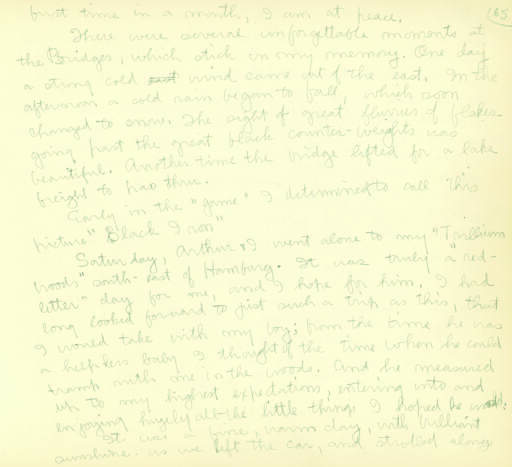 165
first time in a month, I am at peace.
There were several unforgettable moments at
the Bridges, which stick in my memory. One day
a strong cold east wind came out of the east. In the
afternoon a cold rain began to fall, which soon
changed to snow. The sight of great flurries of flakes
going past the great black counter-weights was
beautiful. Another time the bridge lifted for a lake
freight to pass thru.
Early in the "game" I determined to call this
picture "Black Iron"
Saturday, Arthur & I went alone to my "Trillium
Woods" south-east of Hamburg. It was truly a "red-
letter" day for me, and I hope for him. I had
long looked forward to just such a trip as this, that
I would take with my boy; from the time he was
a helpless baby I thought of the time when he could
tramp with me in the woods. And he measured
up to my highest expectations, entering into and
enjoying hugely all the little things I hoped he would.
It was a fine, warm day, with brilliant
sunshine. as we left the car, and strolled along